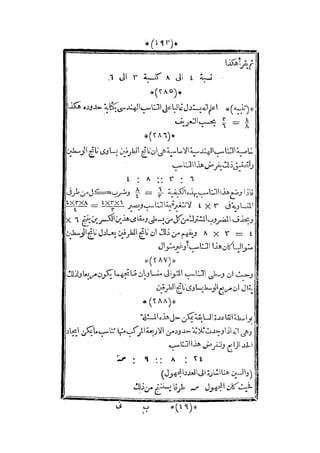 *(٤٩٣)*
ثم يقرأ هكذا
نسبة ٤ الى ٨ كنسبة ٣ الى ٦
*(٢٨٥)*
*(تنبيه)* اعلم انه يستدل غالبا على التناسب الهندسى بكتابة حدوده هكذا
بحسب التعريف
*(٢٨٦)*
خاصية التناسب الهندسية الاساسية هى ان ناتج الطرفين يساوى ناتج الوسطين
ولتحقيق ذلك نفرض هذا التناسب
٤ : ٨ :: ٣ : ٦
فاذا وضع هذا التناسب بهذه الكيفية وضرب كل من طرفى
المتساوية فى
ويحذف المضروب المشترك من كل من بسطى ومقامى هذين الكسرين ينتج ٦ ×
٤ = ٣ × ٨ ويفهم من ذلك ان ناتج الطرفين يعادل ناتج الوسطين
متواليا كان هذا التناسب أو غير متوال
*(٢٨٧)*
وحيث ان وسطى التناسب المتوالى متساويان فناتجهما يكون مربعا ولذلك
يقال ان مربع الوسط يساوى ناتج الطرفين
*(٢٨٨)*
بواسطة القاعدة السابقة يمكن حل هذه المسئلة
وهى انه اذا وجدت ثلاثة حدود من الاربعة المركب منها تناسب ما يمكن ايجاد
الحد الرابع ولنفرض هذا التناسب
٢٤ : ٨ :: ٩ : سه
(والسين هنا اشارة الى العدد المجهول)
فحيث كان المجهول سه طرفا يستنتج من ذلك
*(٤٩)* ب فى